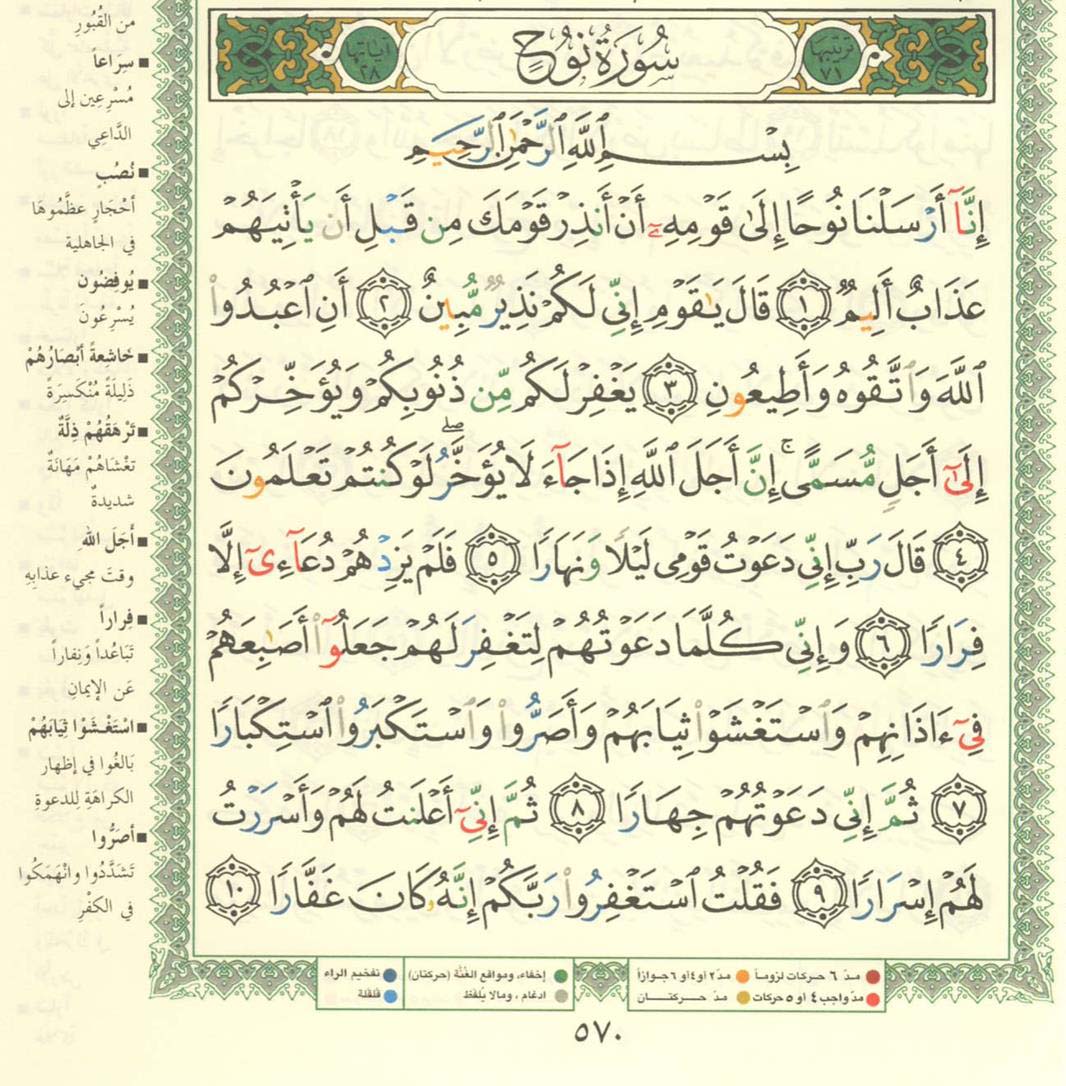 ترتيبها ٧١
سُورَةُ نُوحٍ
آياتها ٢٨
بِسْمِ ٱللَّهِ ٱلرَّحْمَٰنِ ٱلرَّحِيمِ
إِنَّآ أَرْسَلْنَا نُوحًا إِلَىٰ قَوْمِهِۦٓ أَنْ أَنذِرْ قَوْمَكَ مِن قَبْلِ أَن يَأْتِيَهُمْ
عَذَابٌ أَلِيمٌ ١ قَالَ يَٰقَوْمِ إِنِّى لَكُمْ نَذِيرٌ مُّبِينٌ ٢ أَنِ ٱعْبُدُوا۟
ٱللَّهَ وَٱتَّقُوهُ وَأَطِيعُونِ ٣ يَغْفِرْ لَكُم مِّن ذُنُوبِكُمْ وَيُؤَخِّرْكُمْ
إِلَىٰٓ أَجَلٍ مُّسَمًّى ۚ إِنَّ أَجَلَ ٱللَّهِ إِذَا جَآءَ لَا يُؤَخَّرُ ۖ لَوْ كُنتُمْ تَعْلَمُونَ
٤ قَالَ رَبِّ إِنِّى دَعَوْتُ قَوْمِى لَيْلًا وَنَهَارًا ٥ فَلَمْ يَزِدْهُمْ دُعَآءِىٓ إِلَّا
فِرَارًا ٦ وَإِنِّى كُلَّمَا دَعَوْتُهُمْ لِتَغْفِرَ لَهُمْ جَعَلُوٓا۟ أَصَٰبِعَهُمْ
فِىٓ ءَاذَانِهِمْ وَٱسْتَغْشَوْا۟ ثِيَابَهُمْ وَأَصَرُّوا۟ وَٱسْتَكْبَرُوا۟ ٱسْتِكْبَارًا
٧ ثُمَّ إِنِّى دَعَوْتُهُمْ جِهَارًا ٨ ثُمَّ إِنِّىٓ أَعْلَنتُ لَهُمْ وَأَسْرَرْتُ
لَهُمْ إِسْرَارًا ٩ فَقُلْتُ ٱسْتَغْفِرُوا۟ رَبَّكُمْ إِنَّهُۥ كَانَ غَفَّارًا ١٠
من القُبُورِ
■ سِرَاعا
مُسْرِعِين إلى
الدَّاعِي
■ نُصُبٍ
أَحْجَارٍ عظَّمُوهَا
في الجاهلية
■ يُوفِضُون
يُسْرِعُونَ
■ خَاشِعةً أَبْصَارُهُمْ
ذَلِيلَةً مُنْكَسِرَةً
■ تَرْهَقُهُمْ ذِلَّةٌ
تَغْشَاهُمْ مَهَانَةٌ
شديدةٌ
■ أَجَلَ اللهِ
وقتَ مجيء عذابِهِ
■ فِراراً
تَبَاعُداً وَنِفاراً
عَنِ الإيمانِ
■ اسْتَغْشَوْا ثِيَابَهُمْ
بَالغُوا في إظهار
الكراهَةِ لِلدعوةِ
■ أصَرُّوا
تَشَدَّدُوا وانْهَمَكُوا
في الكفْرِ
مدّ ٦ حركات لزوماً
مدّ ٢ او ٤ او ٦ جوازاً
مدّ واجب ٤ او ٥ حركات
مدّ حركتان
إخفاء، ومواقع الغُنَّة (حركتان)
ادغام ، ومالا يُلفَظ
تفخيم الراء
قلقلة
٥٧٠